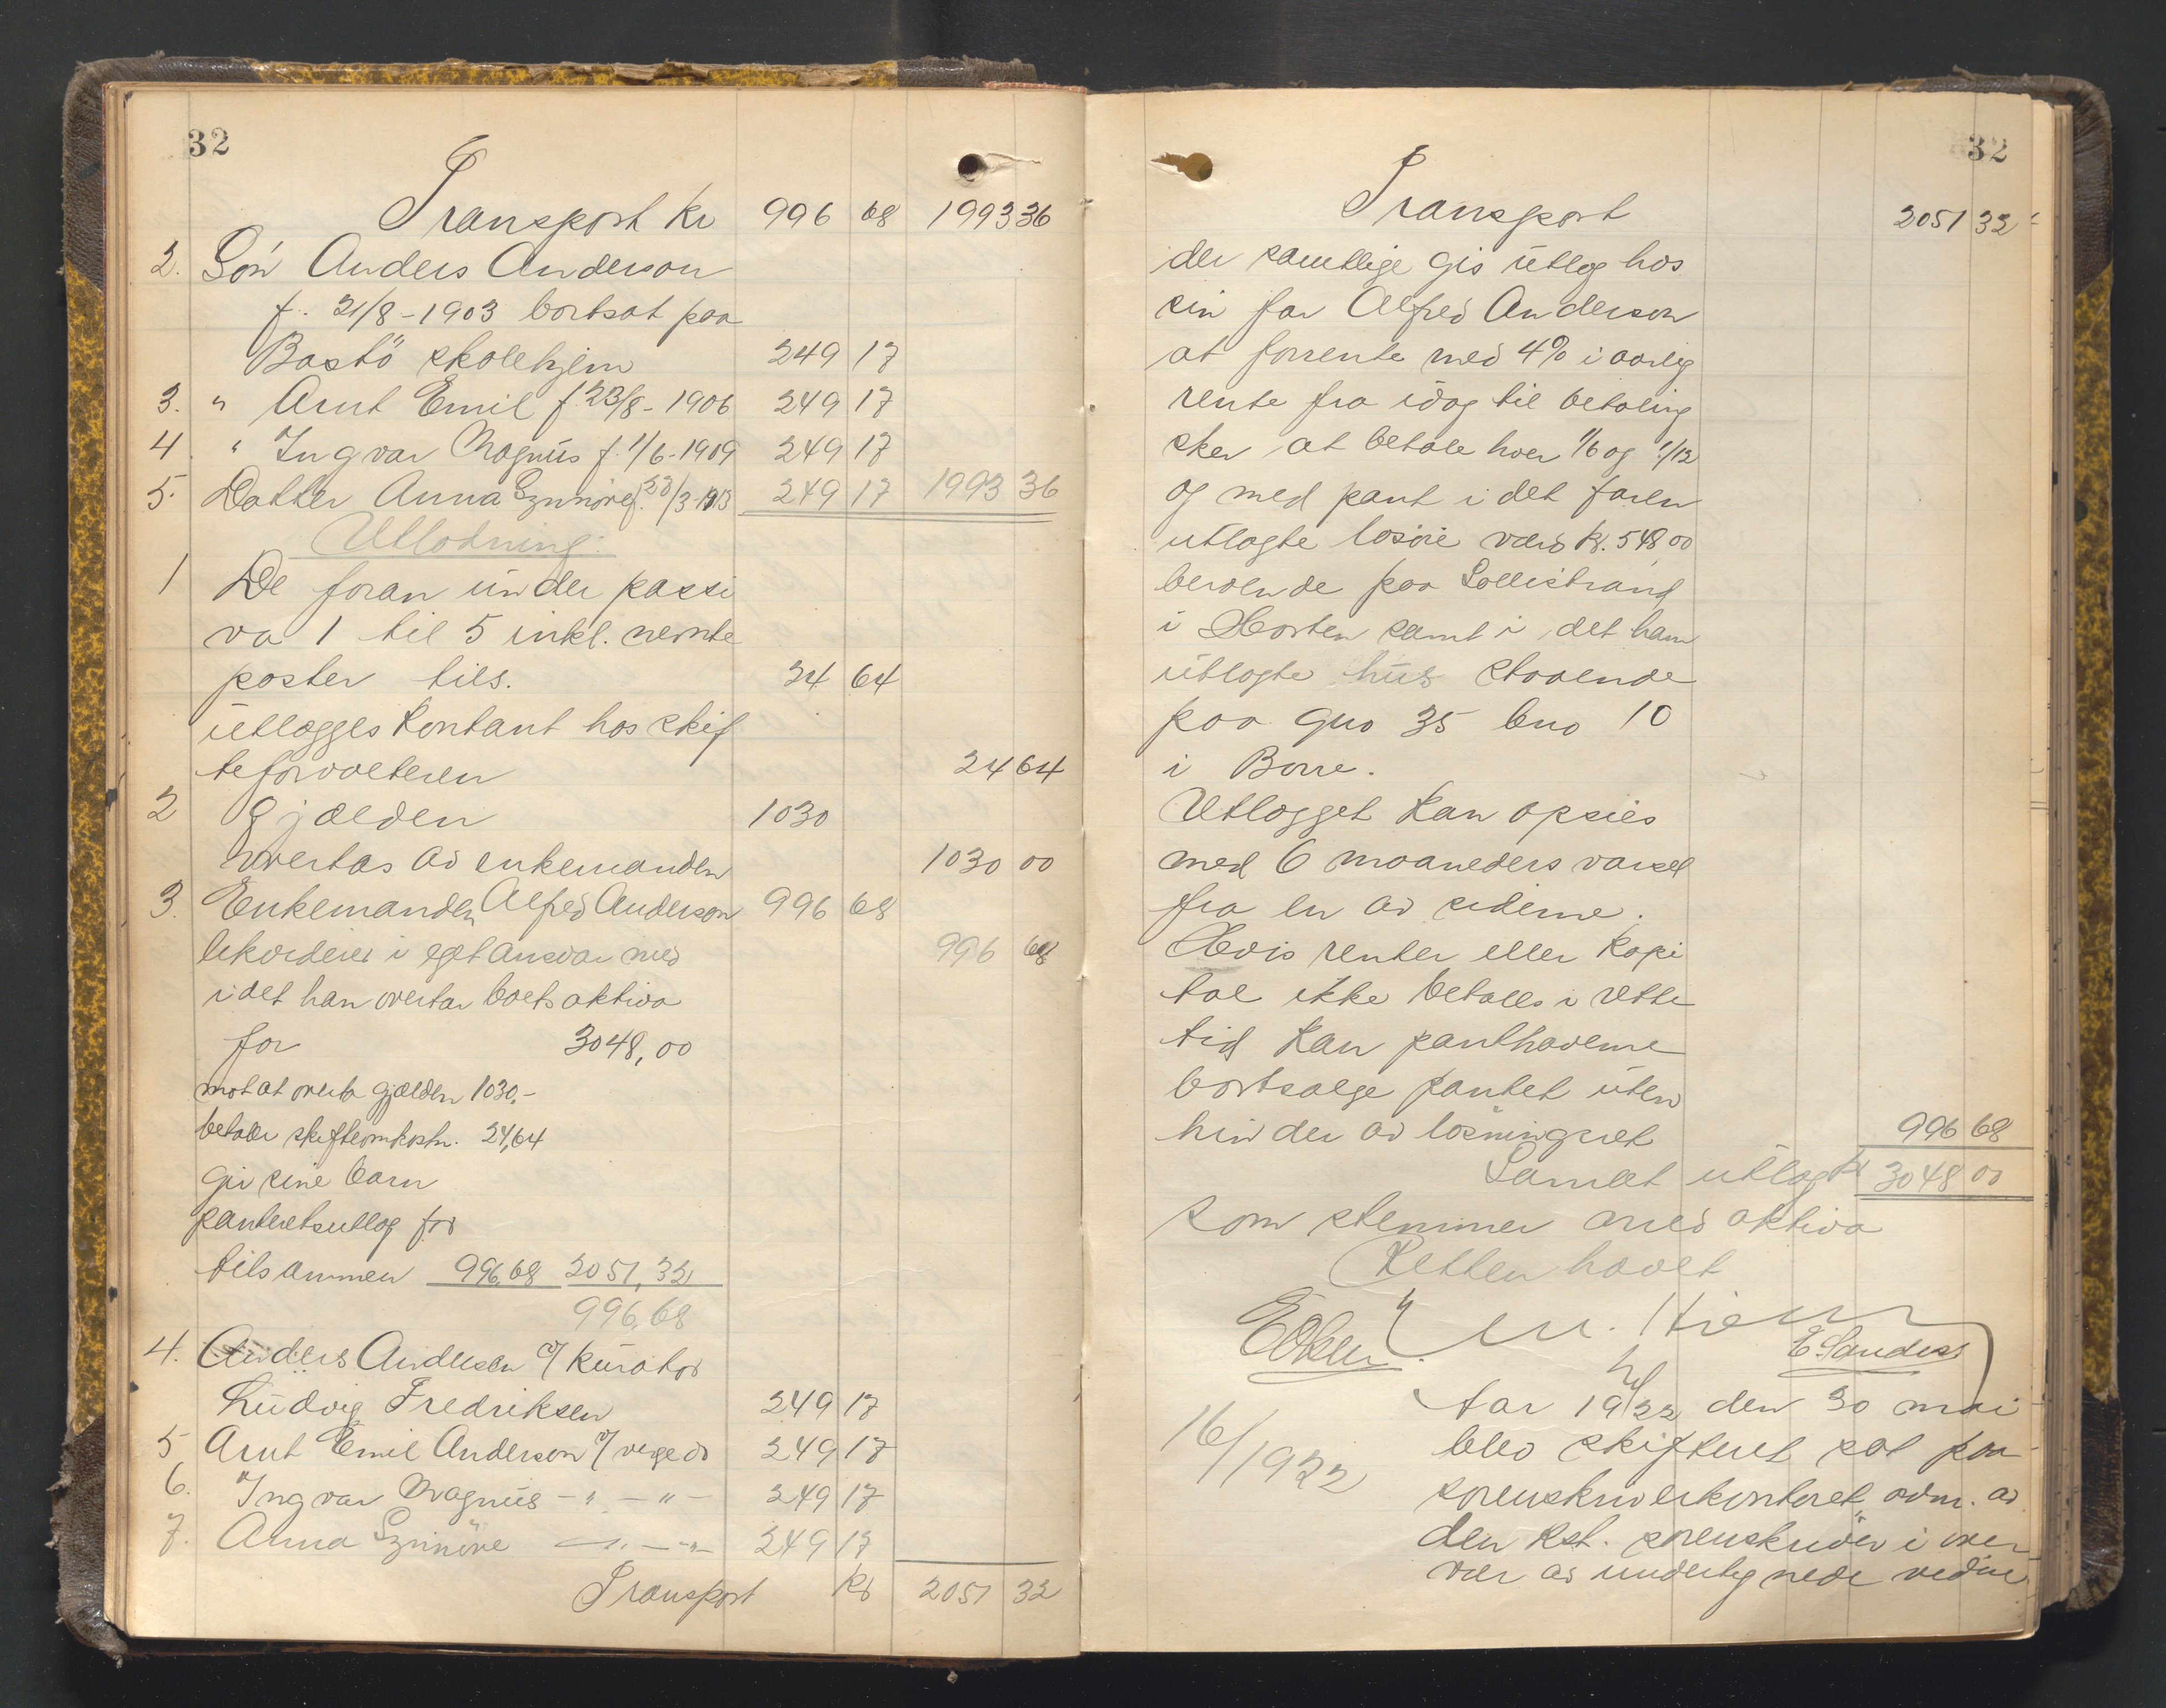 32
Transport kr 996 68 1993 36
2. Søn Anders Anderson
f. 21/8-1903 bortsat paa
Bastö skolehjem 249 17
3. " Arnt Emil f. 23/8-1906 249 17
4. " Ingvar Magnus f. 1/6-1909 249 17
5. Datter Anna Synnöve f. 23/3-1913 249 17 1993 36
Utlodning:
1 De foran under passi
va 1 til 5 inkl. nevnte
poster tils. 24 64
utlægges kontant hos skif
teforvalteren 24 64
2 Gjælden 1030
overtas av enkemanden 1030 00
3. Enkemanden Alfred Anderson 996 68
likvideres i eget ansvar med 996 68
idet han overtar boets aktiva
for 3048,00
mot at overta gjælden 1030.-
betale skifteomkostn. 24,64
gi sine barn
panteretsutlæg for
tilsammen 996,68 2051,32
996,68
4. Anders Anderson v/ kurator
Ludvig Fredriksen 249 17
5 Arnt Emil Anderson v/ verge 249 17
6. Ingvar Magnus - " - " - 249 17
7. Anna Synnöve - " - " - 249 17
Transport kr 2051 32
32
Transport 2051 32
der samtlige gis utlæg hos
sin far Alfred Anderson
at forrente med 4% i aarlig
rente fra idag til betaling
sker at betale hver 1/6 og 1/12
og med pant i det faren
utlagte løsøre værd kr. 548 00
beroende paa Sollistrand
i Horten samt i det ham
utlagte hus staaende
paa gno 35 bno 10
i Borre.
Utlægget kan opsies
med 6 maaneders varsel
fra en av siderne.
Hvis renter eller kapi
tal ikke betales i rette
tid kan panthaverne
bortsælge pantet uten
hinder av løsningsret 996 68
Samlet utlagt kr 3048 00
som stemmer med aktiva
Retten hævet
E. Sandess
16/1922
Aar 1922 den 30 mai
blev skifteret sat paa
sorenskriverkontoret, adm. av
den kst. sorenskriver i over
vær av undertegnede vidne